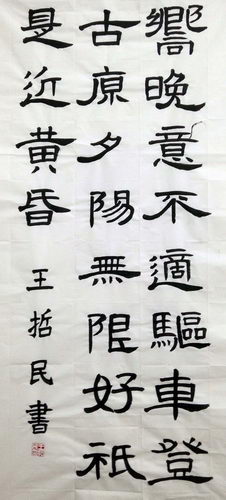 嚮晚意不適驅車登
古原夕陽無限好祇
是近黄昏 王哲民書